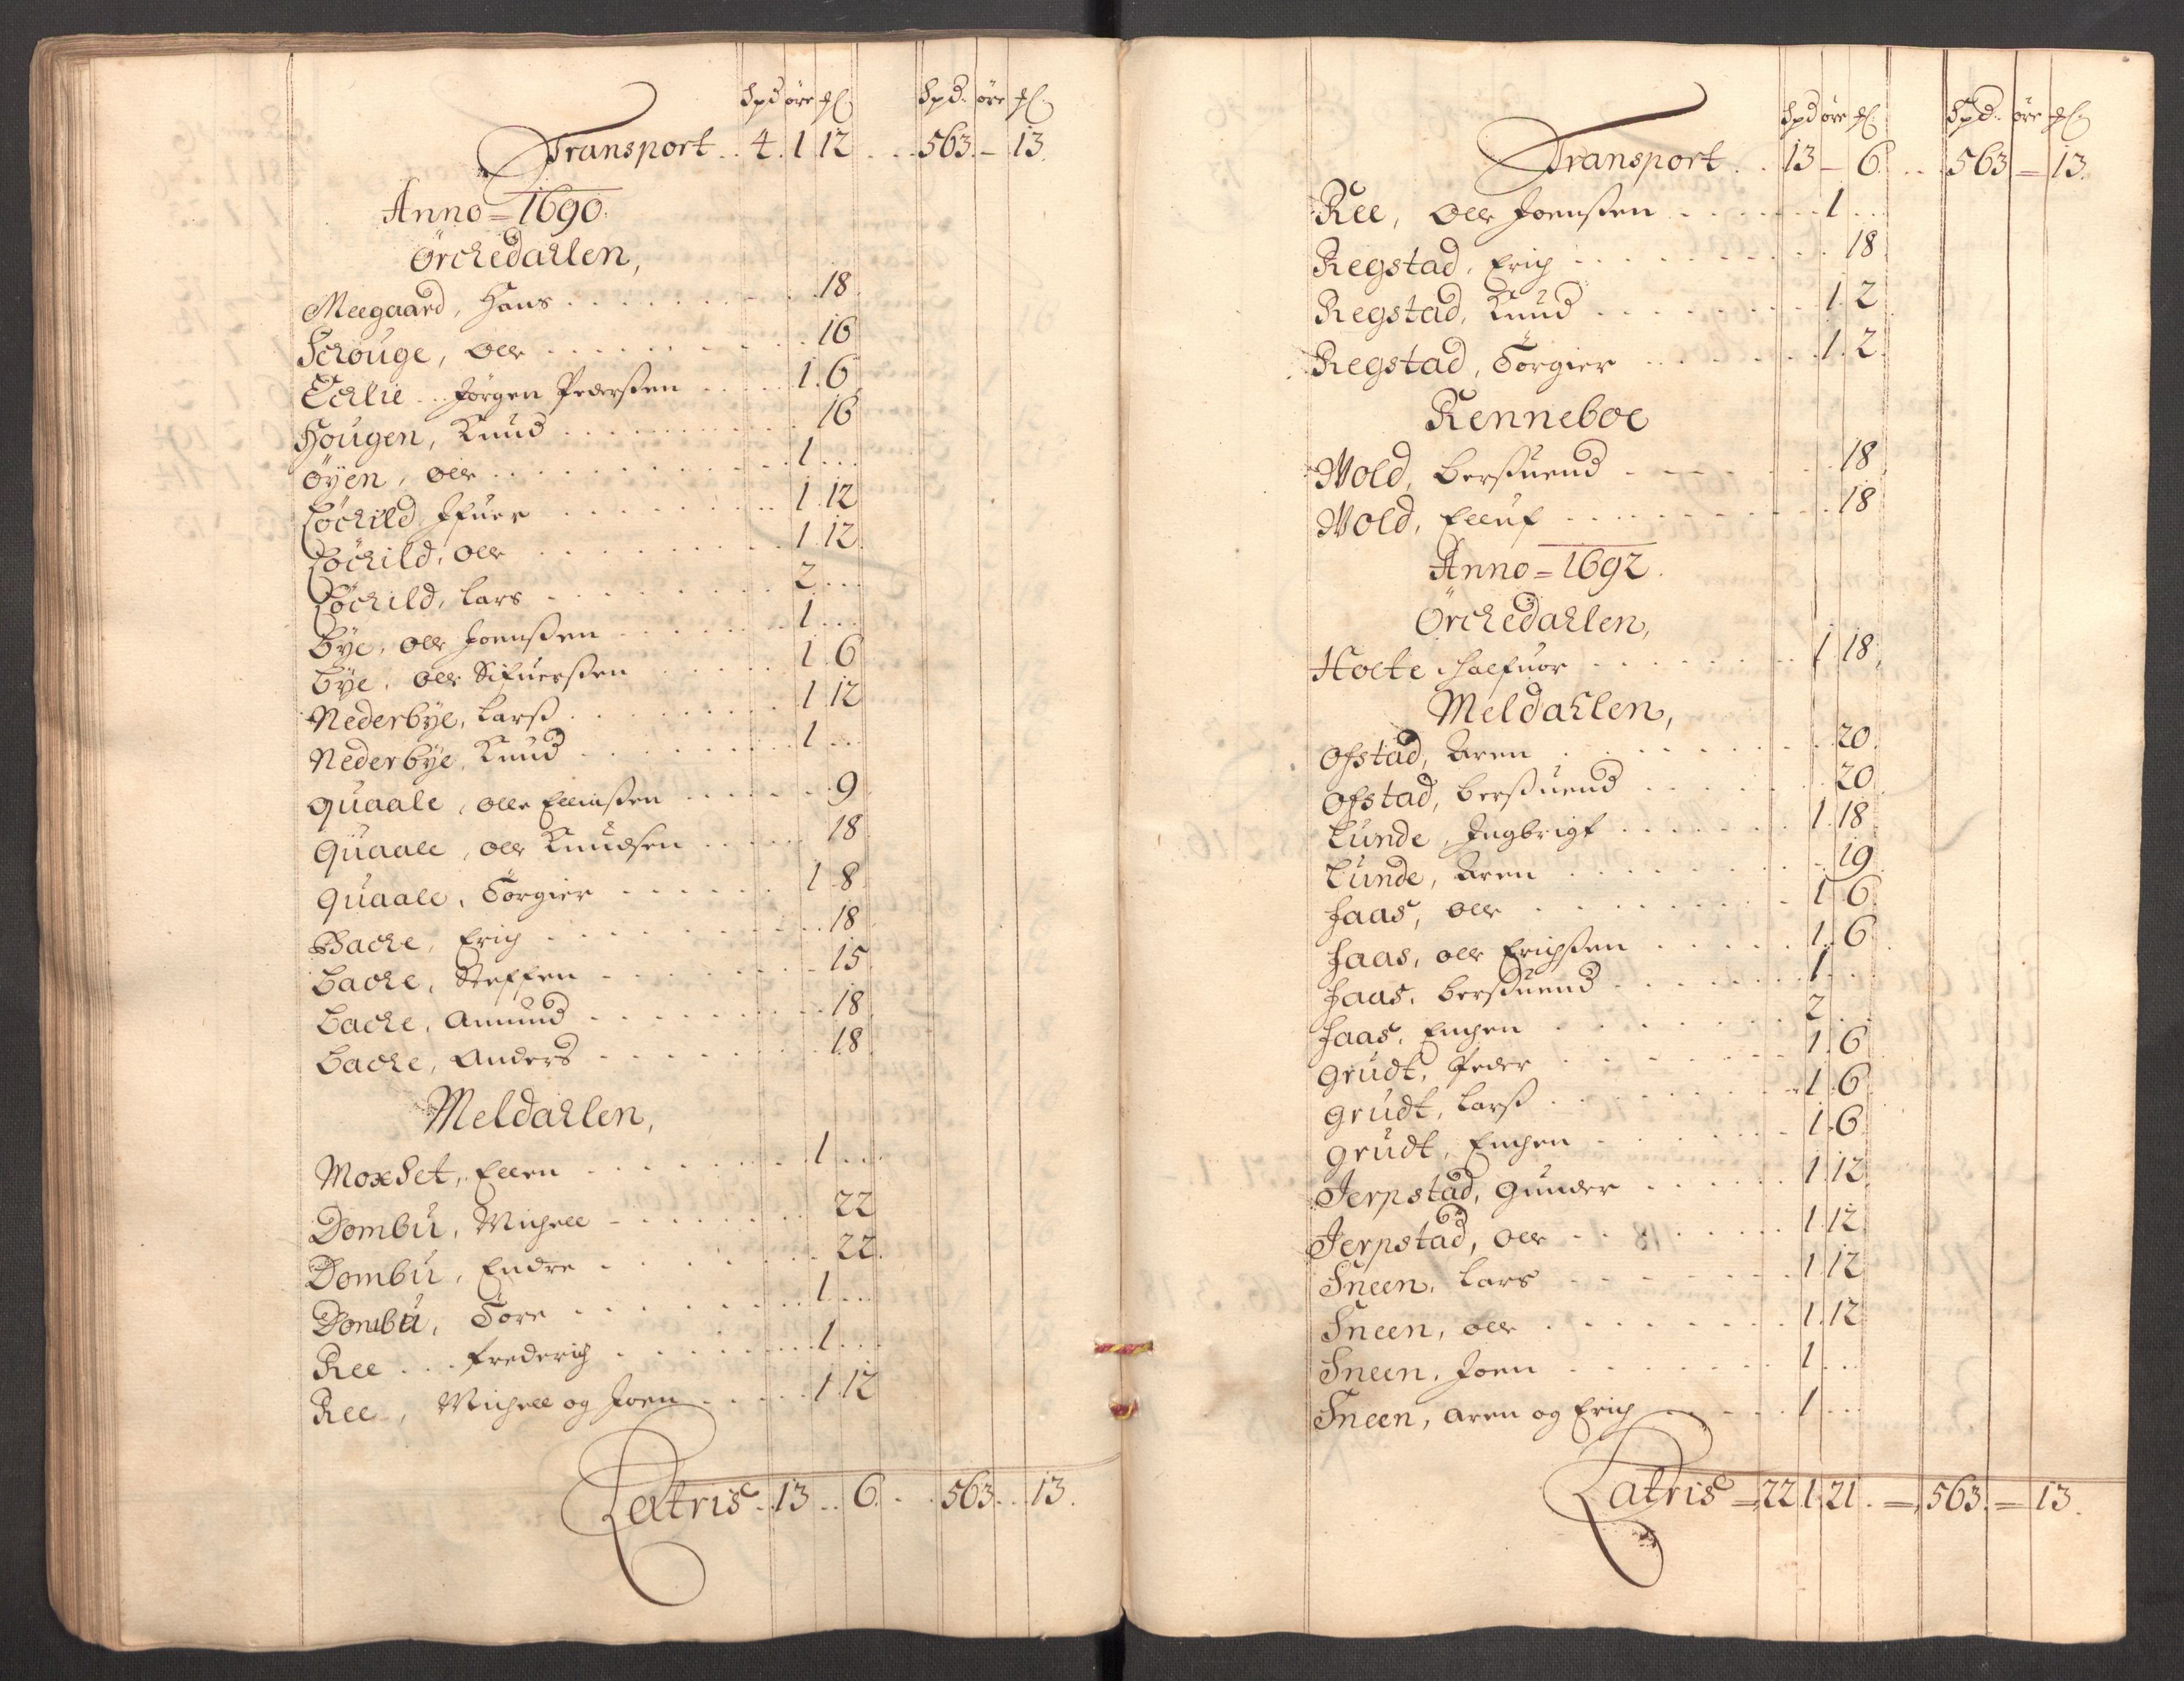 Spd öre
Spd. öre
Transport .. 4. 1 12 . . . 563. – 13.
Anno = 1690.
Örckedahlen,
Meegaard, Hans . . . . . 18.
Schouge, Olle . . . . . 16
Echlie .. Jörgen Pederssen . . . . 1. 6
Hougen, Knud . . . . . 16
Öyen, Olle . . . . . 1 . . .
Löchild, Ifuer . . . . . 1 12
Löchild, Olle . . . . . 1 12.
Löchild, Lars . . . . . 2 . . .
Bÿe, Olle Joenssen . . . . . 1 . . .
Bÿe, Olle Sifuerssen . . . . . 1 6
Nederbÿe, Larss . . . . . 1 12
Nederbÿe, Knud . . . . . 1 . . .
Quaale, Olle Ellinssen . . . . . 9
Quaale, Olle Knudsen . . . . . 18
Quaale, Törgier . . . . . 1 8
Backe, Erich . . . . . 18
Backe, Steffen . . . . . 15
Backe, Amund . . . . . 18
Backe, Anders . . . . . 18
Meldahlen,
Moxset, Ellen . . . . . 1 . . .
Dombu, Michell . . . . . 22
Dombu, Endre . . . . . 22.
Dombu, Tore . . . . . 1 . . .
Ree . . . Frederich . . . . . 1 . . .
Ree, Michell og Joen . . . . . 1 12
Latris . 13 . . 6 . . . 563 . . 13.
Spd öre
Spd. öre
Transport . . 13 – 6. . . 563 – 13.
Ree, Olle Joenssen . . . . . 1 . . .
Regstad, Erich . . . . . 18
Regstad, Knud . . . . . 1. 2
Regstad, Törgier . . . . . 1. 2
Renneboe
Wold, Berssuend . . . . . 18
Wold, Elluf . . . . . 18
Anno = 1692.
Örckedahlen,
Holte Halfuor . . . . . 1 18.
Meldahlen,
Ofstad, Aren . . . . . 20.
Ofstad, Berssuend . . . . . 20
Lunde, Ingbrigt . . . . . 1. 18
Lunde, Aren . . . . . 19
Haas, Olle . . . . . 1 6
Haas, Olle Erichssen . . . . . 1. 6
Haas, Berssuend . . . . . 1 . . .
Haas, Enchen . . . . . 2 . . .
Grudt, Peder . . . . . 1. 6
Grudt, Larss . . . . . 1. 6
Grudt, Enchen . . . . . 1. 6
Jerpstad, Gunder . . . . . 1. 12
Jerpstad, Olle . . . . . 1. 12
Sneen, Lars . . . . . 1. 12
Sneen, Olle . . . . . 1. 12
Sneen, Joen . . . . . 1 . . .
Sneen, Aren og Erich . . . . . 1 . . .
Latris = 22 1. 21. = 563. = 13.